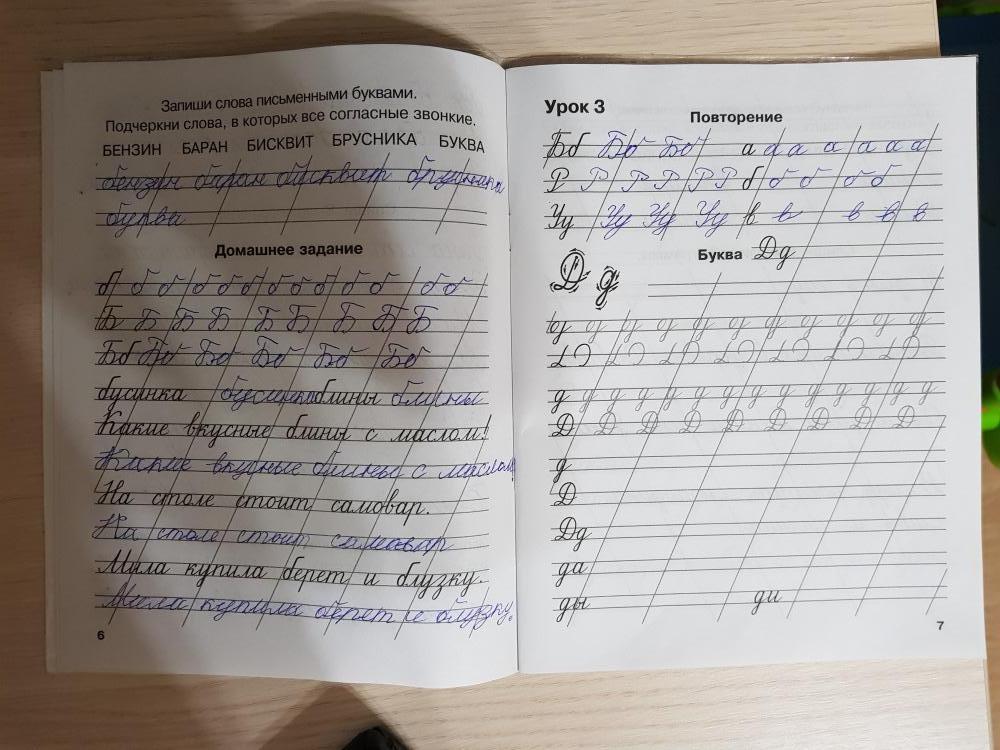 Запиши слова письменными буквами.
Подчеркни слова, в которых все согласные звонкие.
БЕНЗИН БАРАН БИСКВИТ БРУСНИКА БУКВА
бензин баран бисквит брусника
буква
Домашнее задание
б б б б б б б б б б б
Б Б Б Б Б Б Б Б Б
Бб Бб Бб Бб Бб Бб
бусинка бусинка блины блины
Какие вкусные блины с маслом!
Какие вкусные блины с маслом!
На столе стоит самовар.
На столе стоит самовар
Мила купила берет и блузку.
Мила купила берет и блузку.
6
Урок 3
Повторение
Бб Бб Бб а а а а а а а
Р Р Р Р Р Р б б б б б
Уу Уу Уу Уу в в в в в
Буква Дд
Д д
д д д д д д д д д д д
д д д д д д д д д д д д д
Д Д Д Д Д Д Д Д
д
Д
Дд
да
ды ди
7